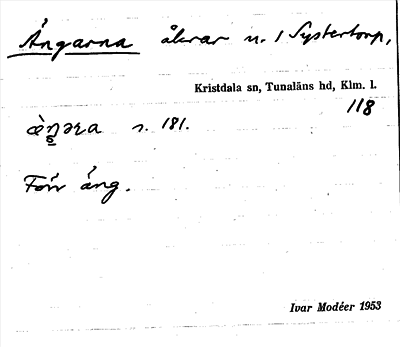 Ängarna åkrar n. 1 Systertorp,
Kristdala sn, Tunaläns hd, Klm. l.
118
s. 181.
Förr äng.
Ivar Modéer 1953